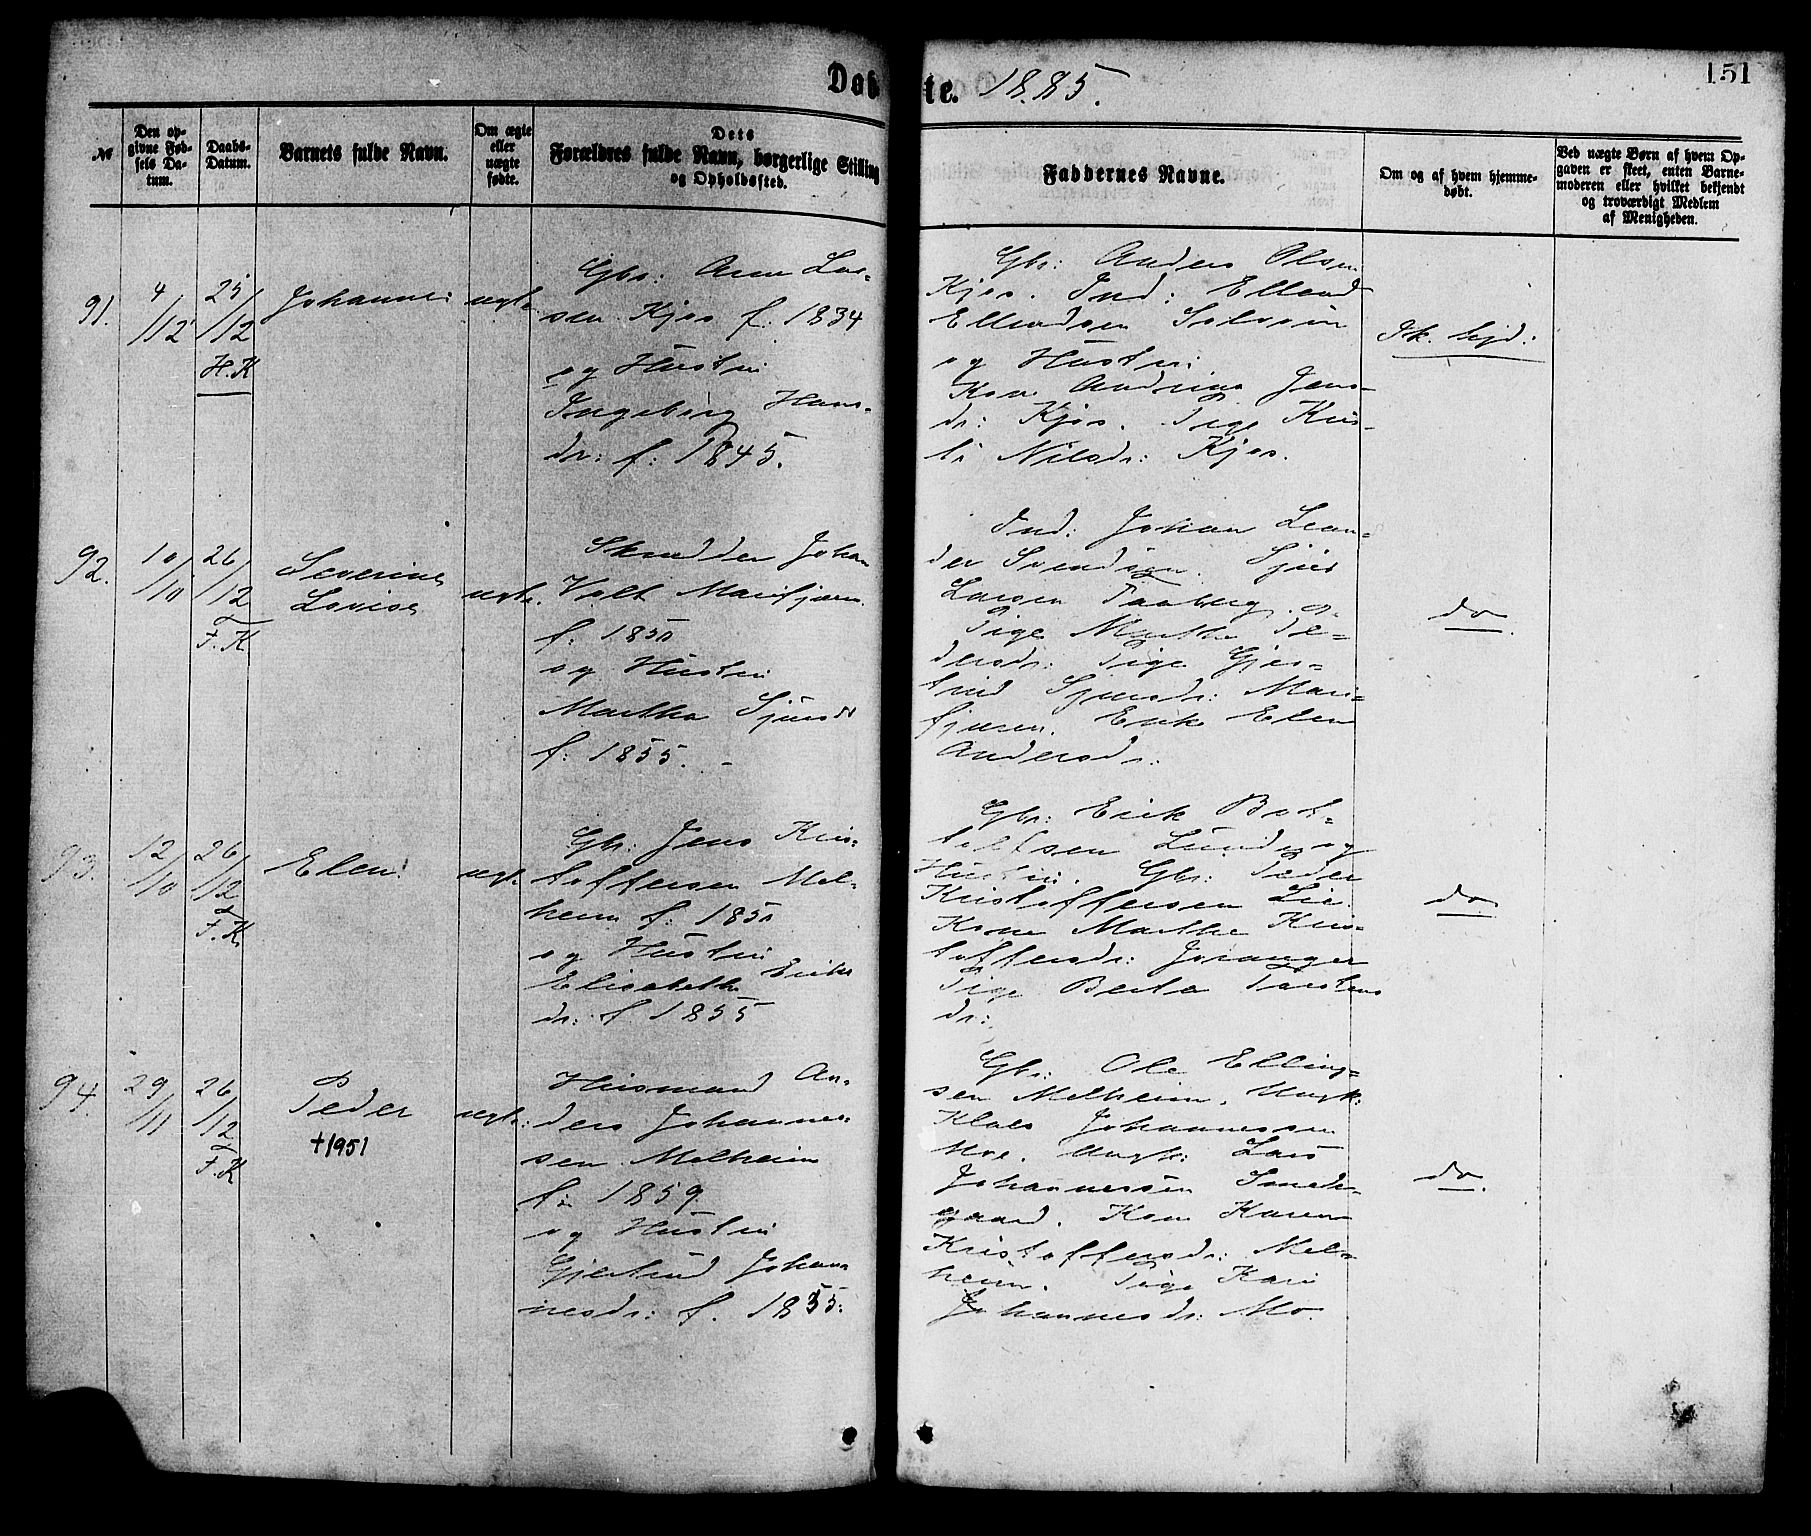 Døbte. 1885.
151
№
Den op-
givne Fød-
sels Da-
tum.
Daabs-
Datum.
Barnets fulde Navn.
Om ægte
eller
uægte
fødte.
Dets
Forældres fulde Navn, borgerlige Stilling
og Opholdssted.
Faddernes Navne.
Om og af hvem hjemme-
døbt.
Ved uægte Børn af hvem Op-
gaven er skeet, enten Barne-
moderen eller hvilket bekjendt
og troværdigt Medlem
af Menigheden.
91.
4/12
25/12
H.K
Johanne
ægte
Gbr: Arne Lar-
sen Kjos f: 1834
og Hustru
Ingeborg Hans-
dr: f: 1845.
Gbr: Anders Olsen
Kjos. Ind: Ellend
Ellendsen
og Hustru
Kone Andrine Jens-
dr: Kjos. Pige Kris-
ti Nilsdr: Kjos.
Ik. hjd:
92.
10/10
26/12
F.K
Severine
Lovise
ægte.
Skrædder Johan
Volt Marifjæren
f: 1850
og Hustru
Martha Sjursdr
f: 1855.
Ind: Johan Lean-
der Svendsen. Sjur
Larsen Taaberg. og
Pige Marthe Pe-
dersdr: Pige Gjer-
trud Sjursdr: Mari-
fjæren. Enke Elen
Andersdr:
do.
93.
12/10
26/12
F.K.
Elen
ægte.
Gbr: Jens Kris-
toffersen Mel-
heim f: 1850
og Hustru
Elisabeth Eriks
dr: f. 1855
Gbr: Erik Bot-
tolfsen Lunde og
Hustru. Gbr: Peder
Kristoffersen Lie.
Kone Marthe Kris-
toffersdr: Joranger
Pige Berta Torstens
dr:
do.
94.
29/11
26/12
F.K
Peder
+1951
ægte:
Husmand An-
ders Johannes-
sen Melheim
f: 1859.
og Hustru
Gjertrud Johan
nesdr: f. 1855:
Gbr: Ole Elling-
sen Melheim. Ungk:
Klaes Johannessen
Moe. Ungk: Lars
Johannessen Smeh-
gaard. Kone Karen
Kristoffersdr: Mel-
heim. Pige Kari
Johannesdr: Mo.
do.